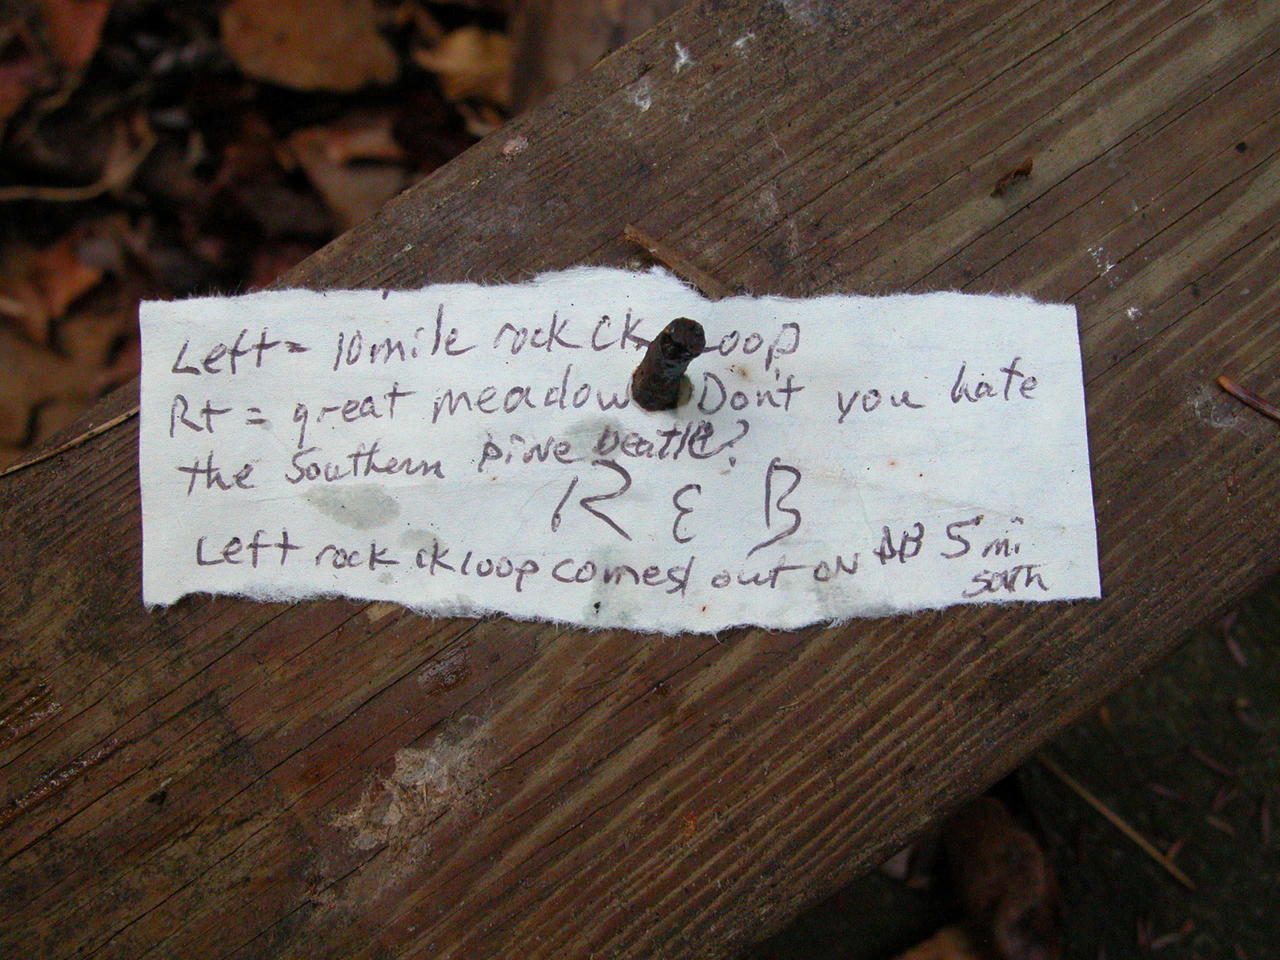 Left = 10 mile rock ck Loop
Rt = great meadow Don't you hate
the Southern pine beatle?
R & B
Left rock ck loop comes out on 5 mi
south